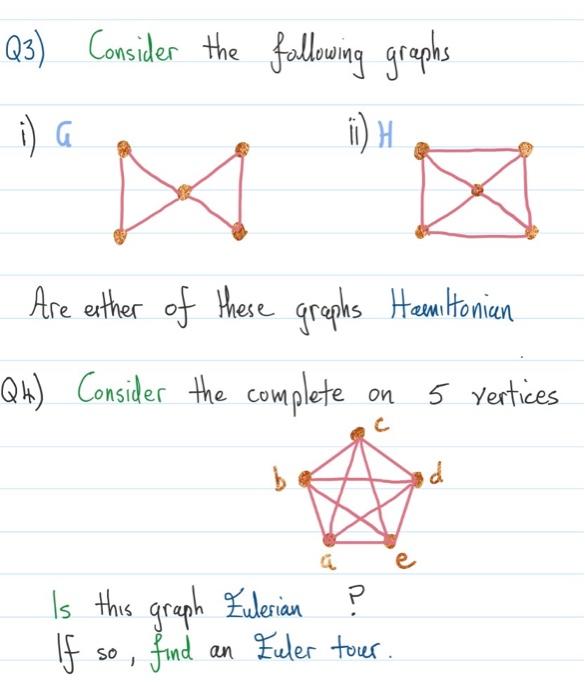 Q3) Consider the following graphs
i) G ii) H
Are either of these graphs Hamiltonian
Q4) Consider the complete on 5 vertices
c
b d
a e
Is this graph Eulerian ?
If so, find an Euler tour.